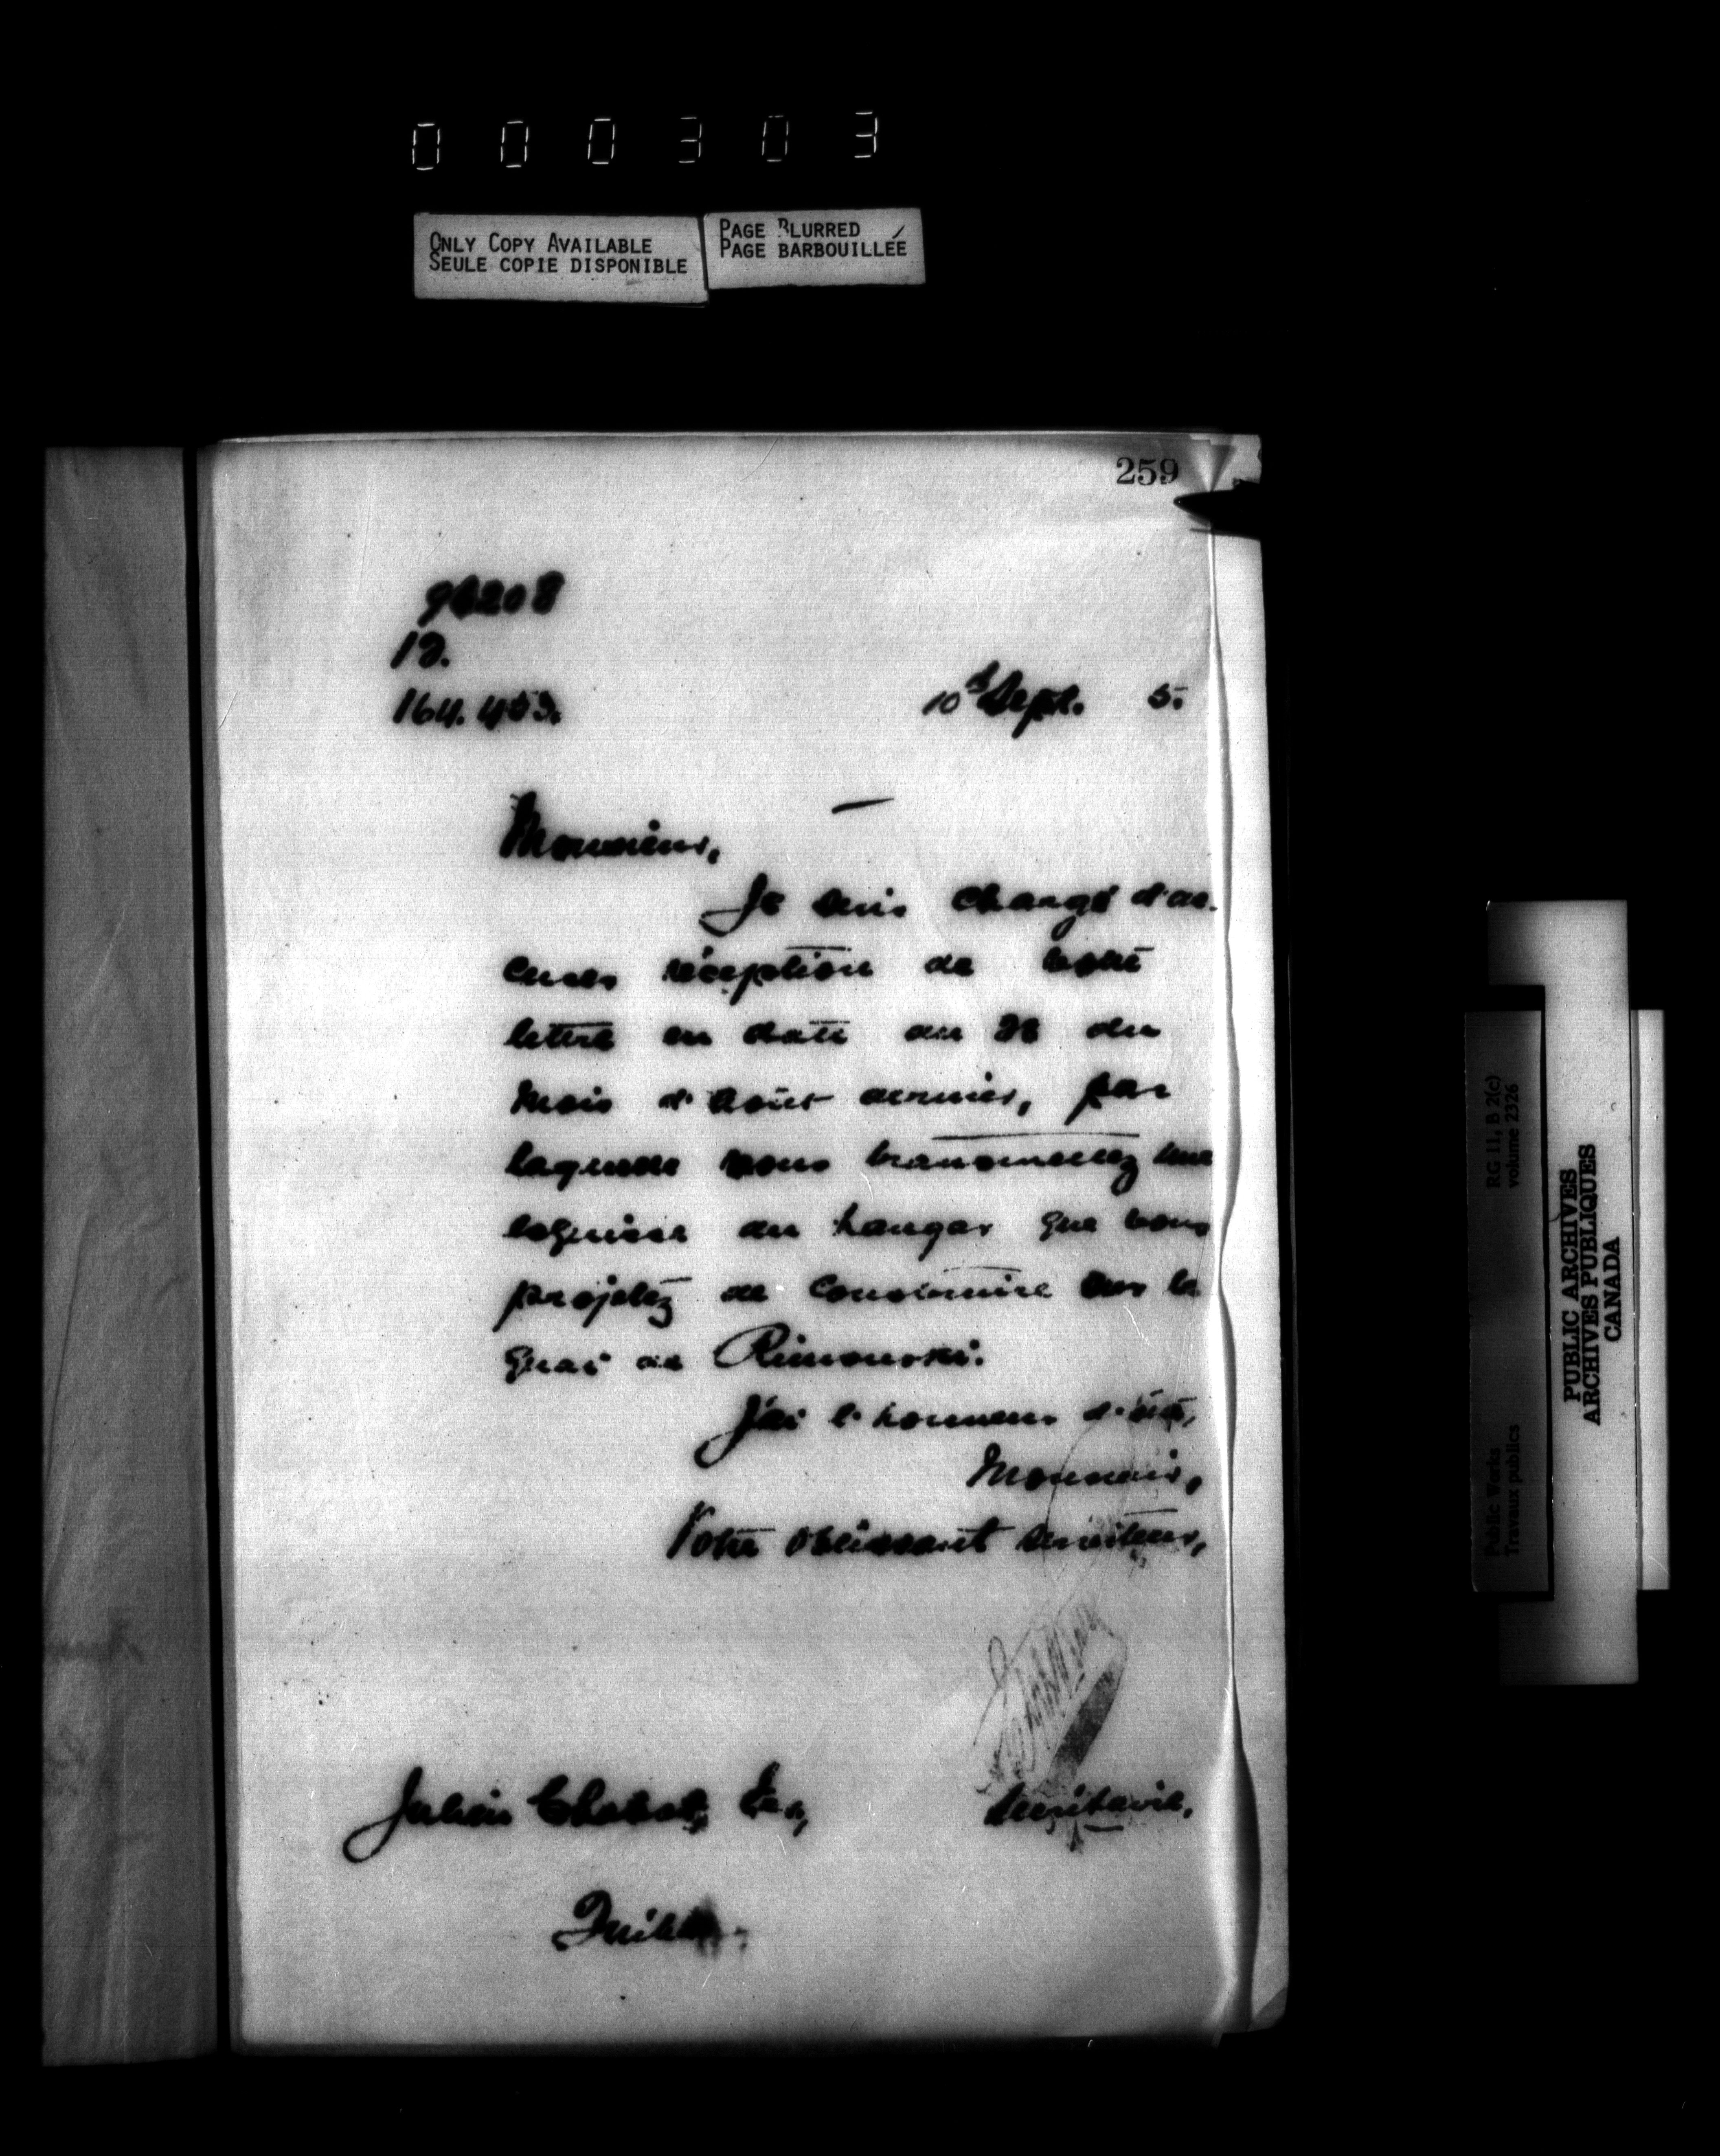 000303
ONLY COPY AVAILABLE
SEULE COPIE DISPONIBLE
PAGE BLURRED
PAGE BARBOUILLÉE
259
96208
12.
164.453.
10 Sept. 5.
Monsieur,
Je suis chargé d'ac-
cuser réception de votre
lettre en date du 28 du
mois d'août dernier, par
laquelle vous transmettez une
esquisse du hangar que vous
projetez de construire sur le
quai de Rimouski.
J'ai l'honneur d'être,
Monsieur,
Votre obéissant serviteur,
Secrétaire.
Julien Chabot, Esr,
Québec.
RG 11, B 2(c)
volume 2326
Public Works
Travaux publics
PUBLIC ARCHIVES
ARCHIVES PUBLIQUES
CANADA